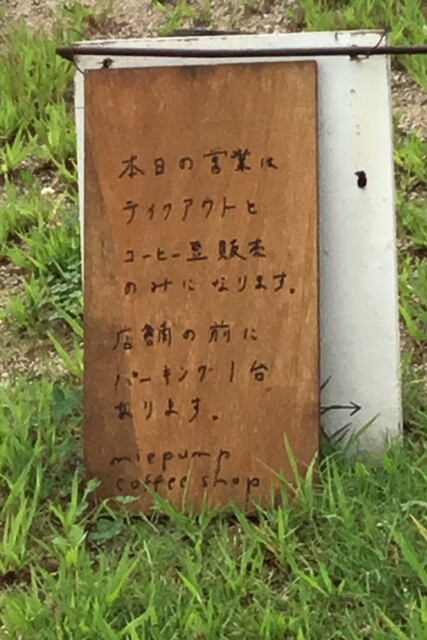 本日の営業は
テイクアウトと
コーヒー豆販売
のみになります。
店舗の前に
パーキング1台
あります。
miepump
coffee shop